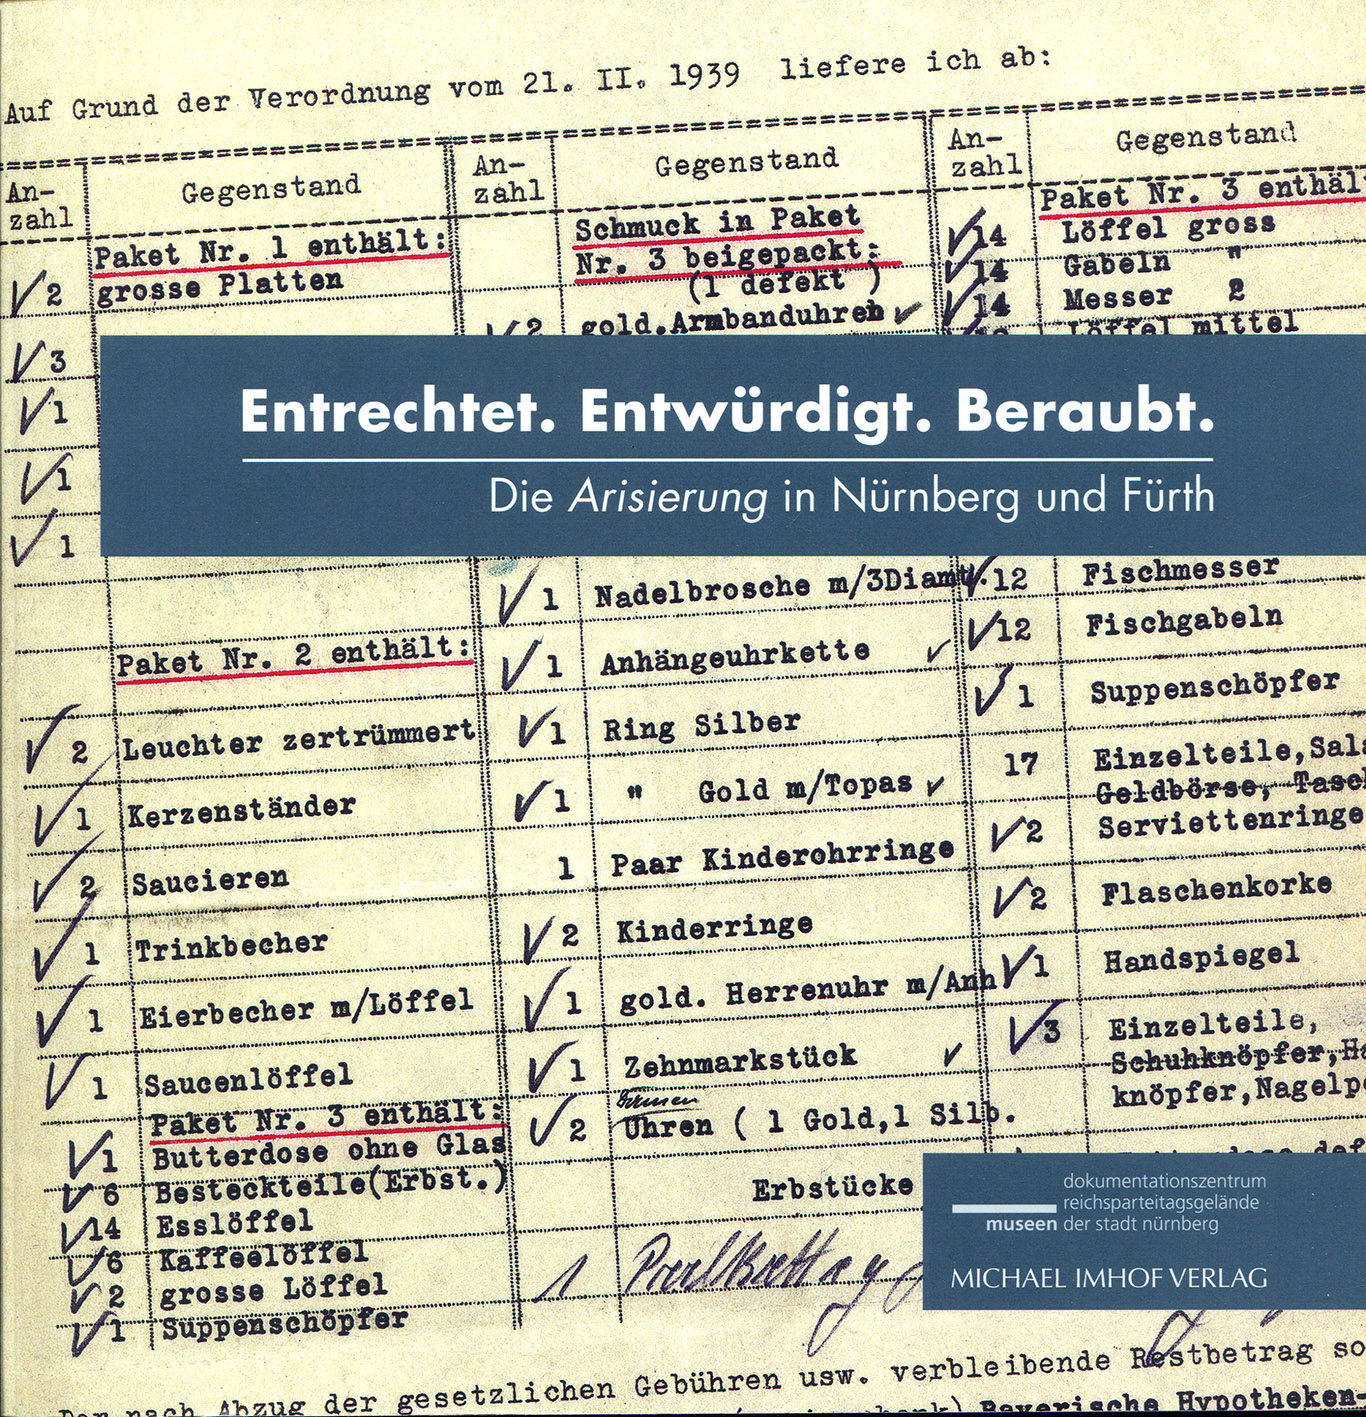 Auf Grund der Verordnung vom 21. II. 1939 liefere ich ab:
An-
zahl
Gegenstand
Paket Nr. 1 enthält:
2 grosse Platten
3
1
1
1
Paket Nr. 2 enthält:
2 Leuchter zertrümmert
1 Kerzenständer
2 Saucieren
1 Trinkbecher
1 Eierbecher m/Löffel
1 Saucenlöffel
Paket Nr. 3 enthält:
1 Butterdose ohne Glas
6 Besteckteile(Erbst.)
14 Esslöffel
6 Kaffeelöffel
2 grosse Löffel
1 Suppenschöpfer
An-
zahl
Gegenstand
Schmuck in Paket
Nr. 3 beigepackt:
(1 defekt )
2 gold.Armbanduhren
Entrechtet. Entwürdigt. Beraubt.
Die Arisierung in Nürnberg und Fürth
1 Nadelbrosche m/3Diamt.
1 Anhängeuhrkette
1 Ring Silber
1 " Gold m/Topas
1 Paar Kinderohrringe
2 Kinderringe
1 gold. Herrenuhr m/Anh
1 Zehnmarkstück
2 Uhren ( 1 Gold,1 Silb.
Erbstücke
1
An-
zahl
Gegenstand
Paket Nr. 3 enthäl
14 Löffel gross
14 Gabeln "
14 Messer 2
Löffel mittel
12 Fischmesser
12 Fischgabeln
1 Suppenschöpfer
17 Einzelteile,Sala
Geldbörse, Tasc
2 Serviettenringe
2 Flaschenkorke
1 Handspiegel
3 Einzelteile,
Schuhknöpfer,Ha
knöpfer,Nagelp
dokumentationszentrum
reichsparteitagsgelände
museen der stadt nürnberg
MICHAEL IMHOF VERLAG
nach Abzug der gesetzlichen Gebühren usw. verbleibende Restbetrag so
Bayerische Hypotheken-